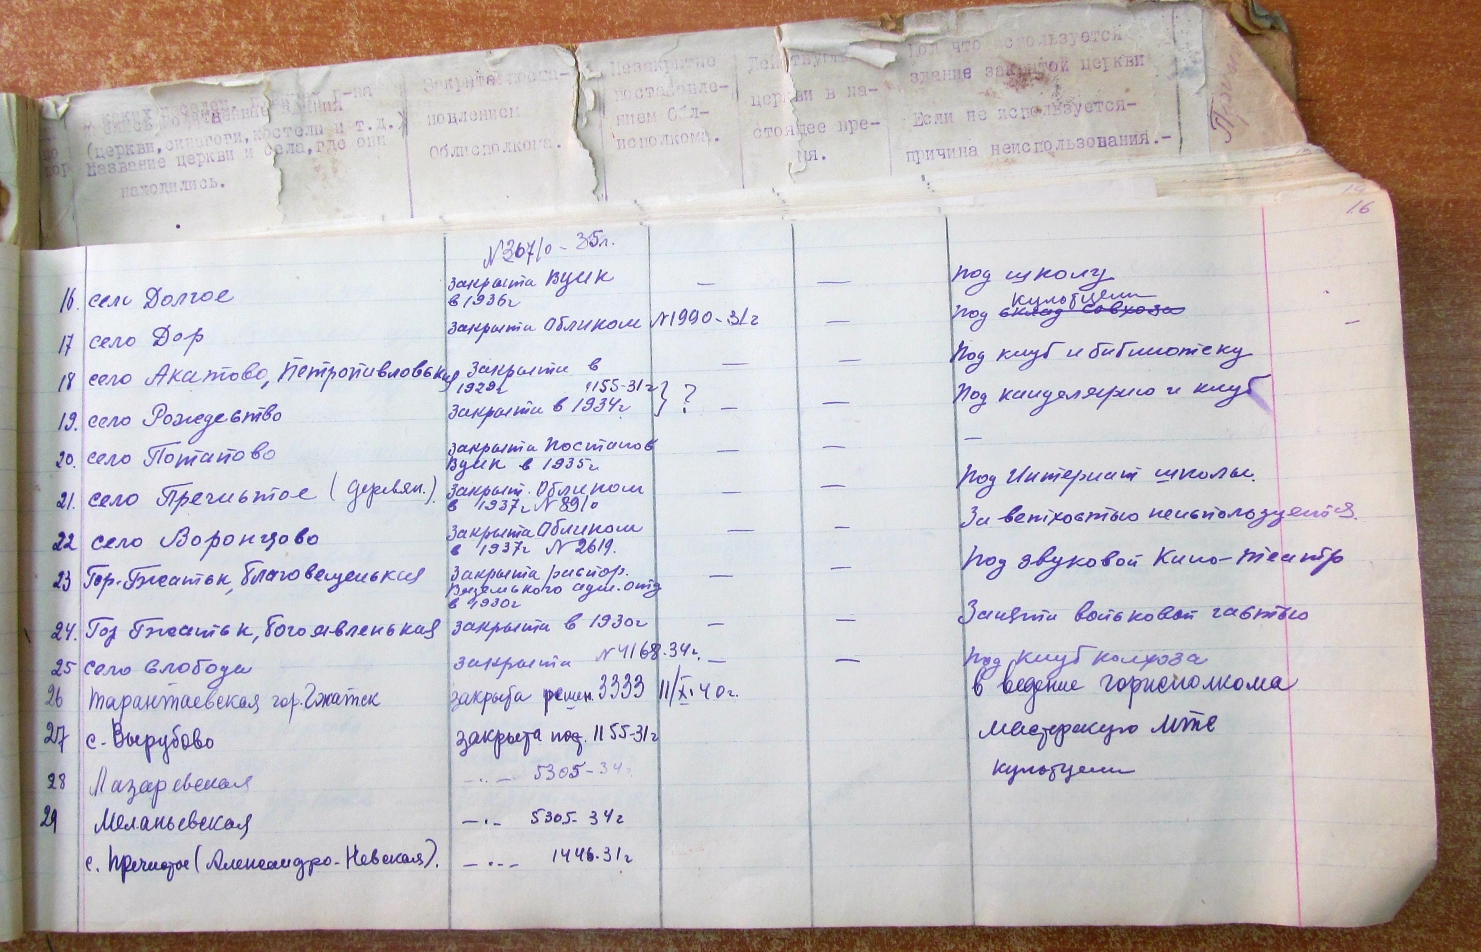 Закрыта поста-
новлением
Облисполкома.
Незакрытие
постановле-
нием Обл-
исполкома.
церкви в на-
стоящее вре-
мя.
Под что используется
здание закрытой церкви
Если не используется-
причина неиспользования.-
(церкви, синагоги, костелы и т.д.)
Название церкви и села, где они
находились.
16
№ 367/0 - 35г.
16. село Долгое закрыта ВЦИК в 1936г — — под школу
17 село Дор закрыта Обликом №1990-31г — под склад совхоза культцели —
18 село Акатово, Петропавловская Закрыта в 1929г — — Под клуб и библиотеку
19. село Рождество 1155-31г закрыта в 1934г } ? — — Под канцелярию и клуб
20. село Потапово закрыта Постанов ВЦИК в 1935г — — —
21. село Пречистое (деревян.) закрыт. Обликом в 1937г №891/0 — — Под Интернат школы.
22 село Воронцово закрыта Обликом в 1937г №2619. — — За ветхостью неиспользуется.
23 Гор. Гжатск, Благовещенская Закрыта распор. Вяземского адм. отд в 1930г — — Под звуковой Кино-театр
24. Гор Гжатск, Богоявленская закрыта в 1930г — — Занята войсковой частью
25 село слобода закрыта №4168-34г. — — Под клуб колхоза
26 Тарантаевская гор. Гжатск закрыта решен. 3333 11/XI.40г. в ведение горисполкома
27 с. Вырубово закрыта пос. 1155-31г мастерскую МТС
28 Лазаревская —.— 5305-34г культцели
29 Меланьевская —.— 5305-34г
с. Пречистое (Александро-Невская). —..— 1446-31г